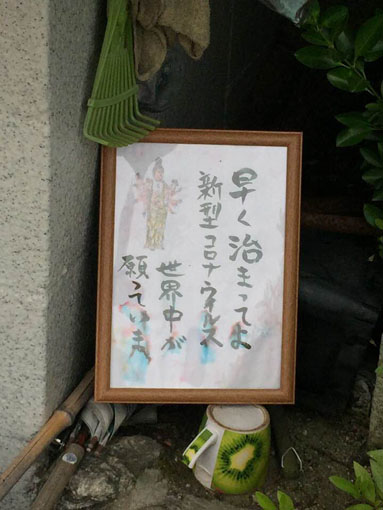 早く治まってよ
新型コロナウイルス
世界中が
願っています